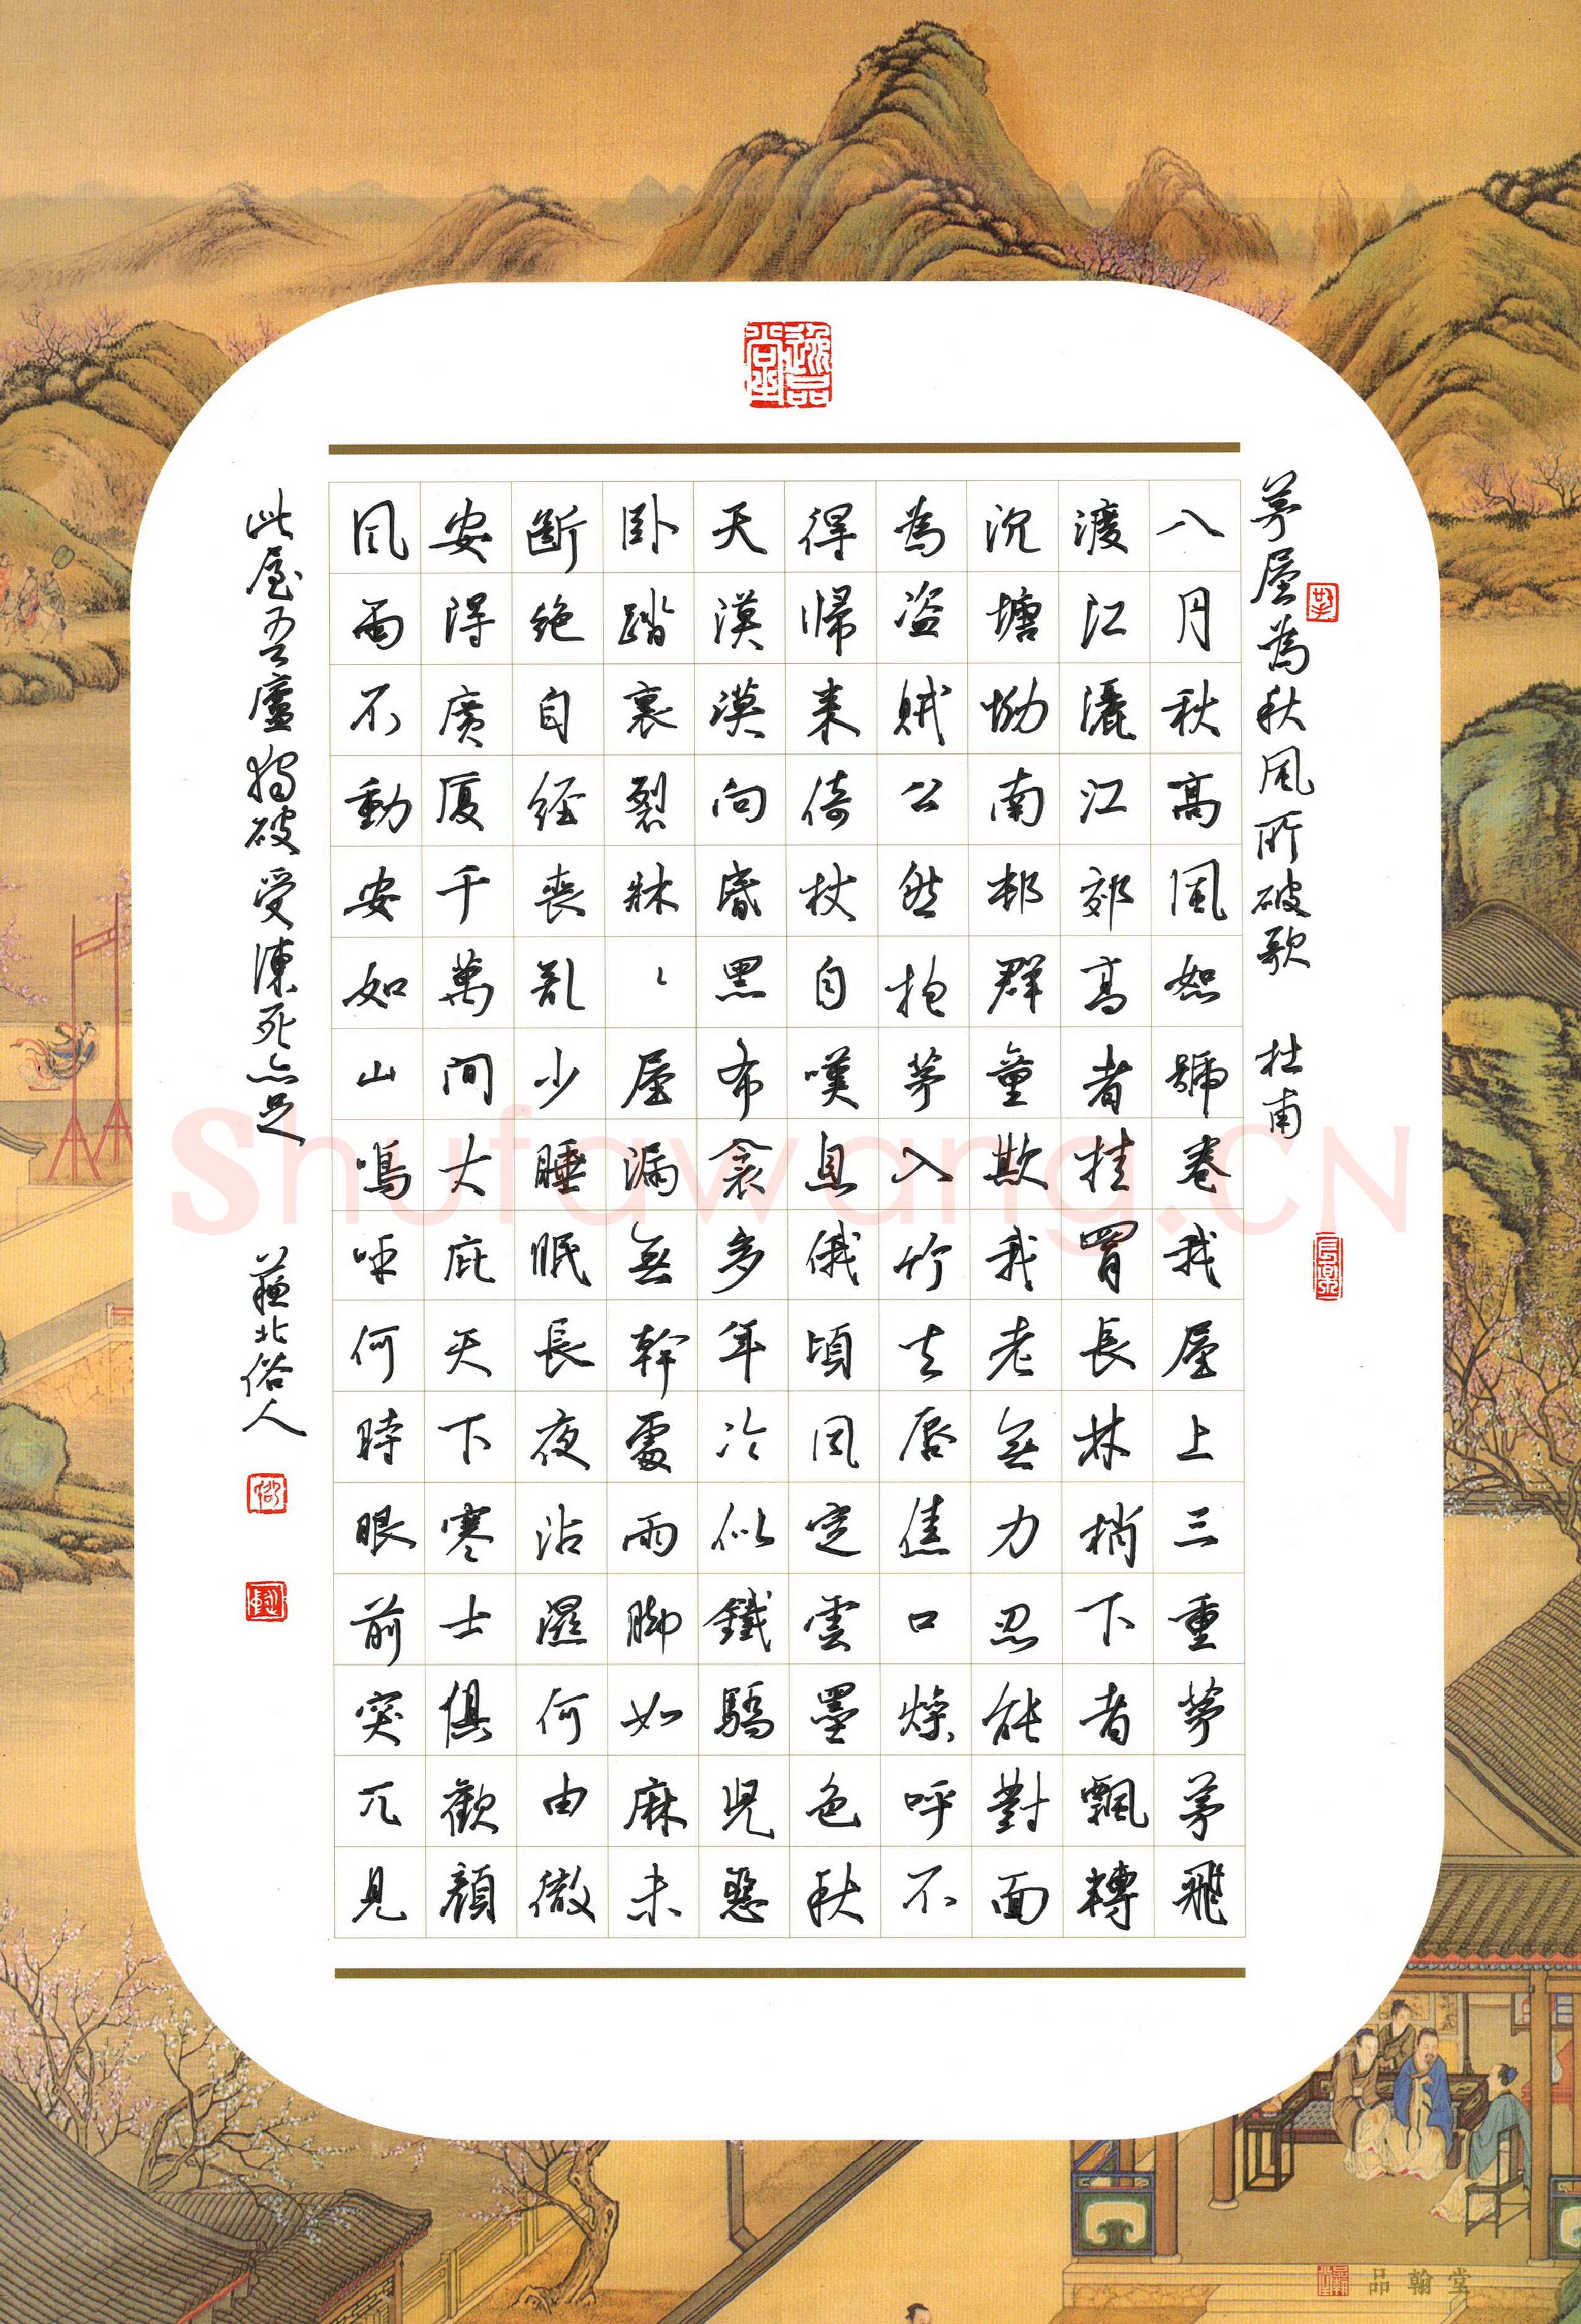 茅屋為秋風所破歌 杜甫
八月秋高風怒號卷我屋上三重茅茅飛
渡江灑江郊高者挂罥長林梢下者飄轉
沉塘坳南邨群童欺我老無力忍能對面
為盗賊公然抱茅入竹去唇焦口燥呼不
得歸来倚杖自嘆息俄頃風定雲墨色秋
天漠漠向昏黑布衾多年冷似鐵驕兒惡
卧踏裏裂牀〻屋漏無幹處雨脚如麻未
斷絶自經喪亂少睡眠長夜沾濕何由徹
安得廣厦千萬間大庇天下寒士俱歡顔
風雨不動安如山鳴呼何時眼前突兀見
此屋吾廬獨破受凍死亦足 蘇北俗人
逸品堂
Shufawang.CN
品翰堂